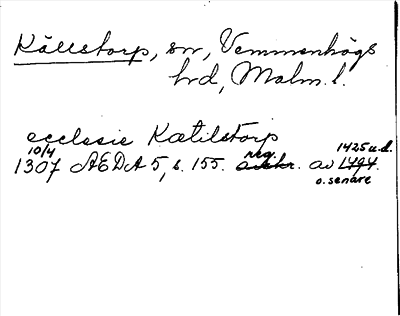 Källstorp, sn, Vemmenhögs
hd, Malm. l.
ecclesie Kætilstorp
10/4 reg. 1425 u.d.
1307 AEDA 5, s. 155. av 1494.
o. senare